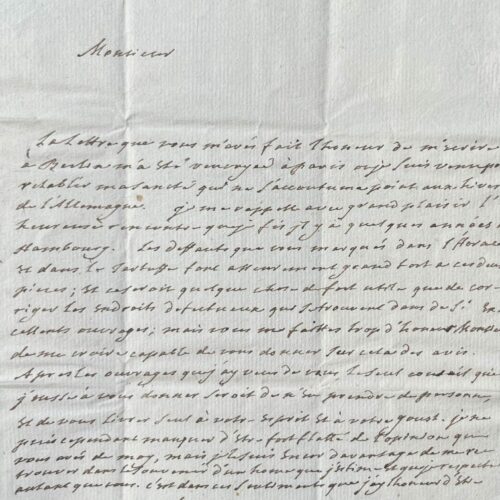 Monsieur
La Lettre que vous m'avés fait l'honeur de m'ecrire
a Berlin m'a eté renvoyée à paris ou je suis venu po
retablir ma santé qui ne s'accoutume point aux hivers
de l'Allemagne. je me rappelle avec grand plaisir l'
heureuse rencontre que je fis il y a quelques années a
Hambourg. Les deffauts que vous marqués dans l'Horace
et dans le Tartuffe font asseurement grand tort a ces deux
pieces; et ce seroit quelque chose de fort utile que de cor-
riger les endroits defectueux qui se trouvent dans de si Ex
cellents ouvrages; mais vous me faittes trop d'honeur Monsie
de me croire capable de vous donner sur cela des avis.
Apres les ouvrages que j'ay veus de vous, le seul conseil que
j'eusse à vous donner seroit de n'en prendre de personne,
et de vous livrer seul à votre esprit et à votre goust. je ne
puis cependant manquer d'etre fort flatté de l'opinion que
vous avés de moy, mais je le suis encor davantage de me re-
trouver dans le souvenir d'un home que j'estime et que je respecte
autant que vous. c'est dans ces sentiments que j'ay l'honeur d'etre